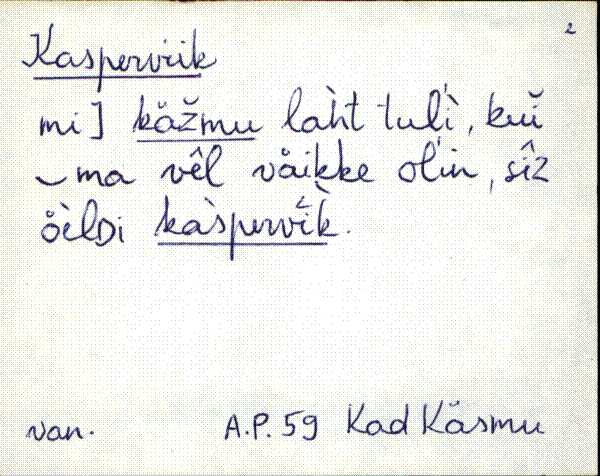 2
Kasperviik
mi] kăžmu làht tuĺì, kuĭ
‿ma vêl văikke oĺin, sîz
ŏ̀ èlDi kàspervìk.
van. A.P. 59 Kad Käsmu